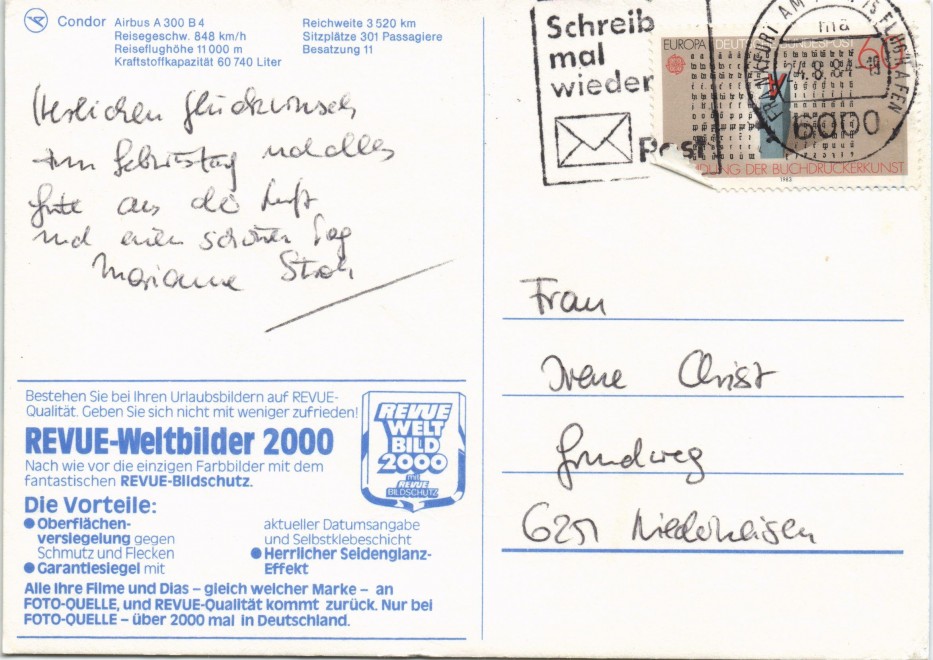 Condor Airbus A 300 B 4
Reisegeschw. 848 km/h
Reiseflughöhe 11 000 m
Kraftstoffkapazität 60 740 Liter
Reichweite 3 520 km
Sitzplätze 301 Passagiere
Besatzung 11
Herzlichen Glückwunsch
zum Geburtstag und alles
Gute aus der Luft
und einen schönen Tag
Marianne
Bestehen Sie bei Ihren Urlaubsbildern auf REVUE-
Qualität. Geben Sie sich nicht mit weniger zufrieden!
REVUE-Weltbilder 2000
Nach wie vor die einzigen Farbbilder mit dem
fantastischen REVUE-Bildschutz.
Die Vorteile:
● Oberflächen-
versiegelung gegen
Schmutz und Flecken
● Garantiesiegel mit
aktueller Datumsangabe
und Selbstklebeschicht
● Herrlicher Seidenglanz-
Effekt
Alle Ihre Filme und Dias – gleich welcher Marke – an
FOTO-QUELLE, und REVUE-Qualität kommt zurück. Nur bei
FOTO-QUELLE – über 2000 mal in Deutschland.
REVUE
WELT
BILD
2000
mit
REVUE
BILDSCHUTZ
Schreib
mal
wieder
Post
EUROPA DEUTSCHE BUNDESPOST 60
DUNG DER BUCHDRUCKERKUNST
1983
FRANKFURT AM MAIN 75 FLUGHAFEN
ma
4.8.84
6000
Frau
Irene Christ
Grundweg
6251